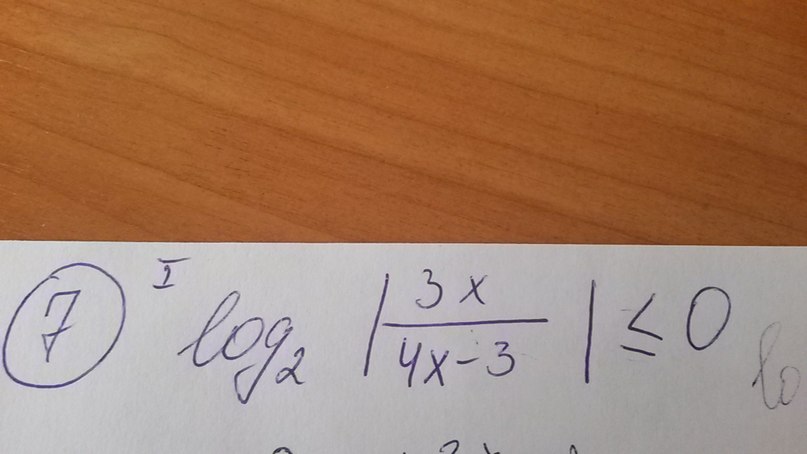 7 I log₂ |3x / 4x-3| ≤ 0 lo